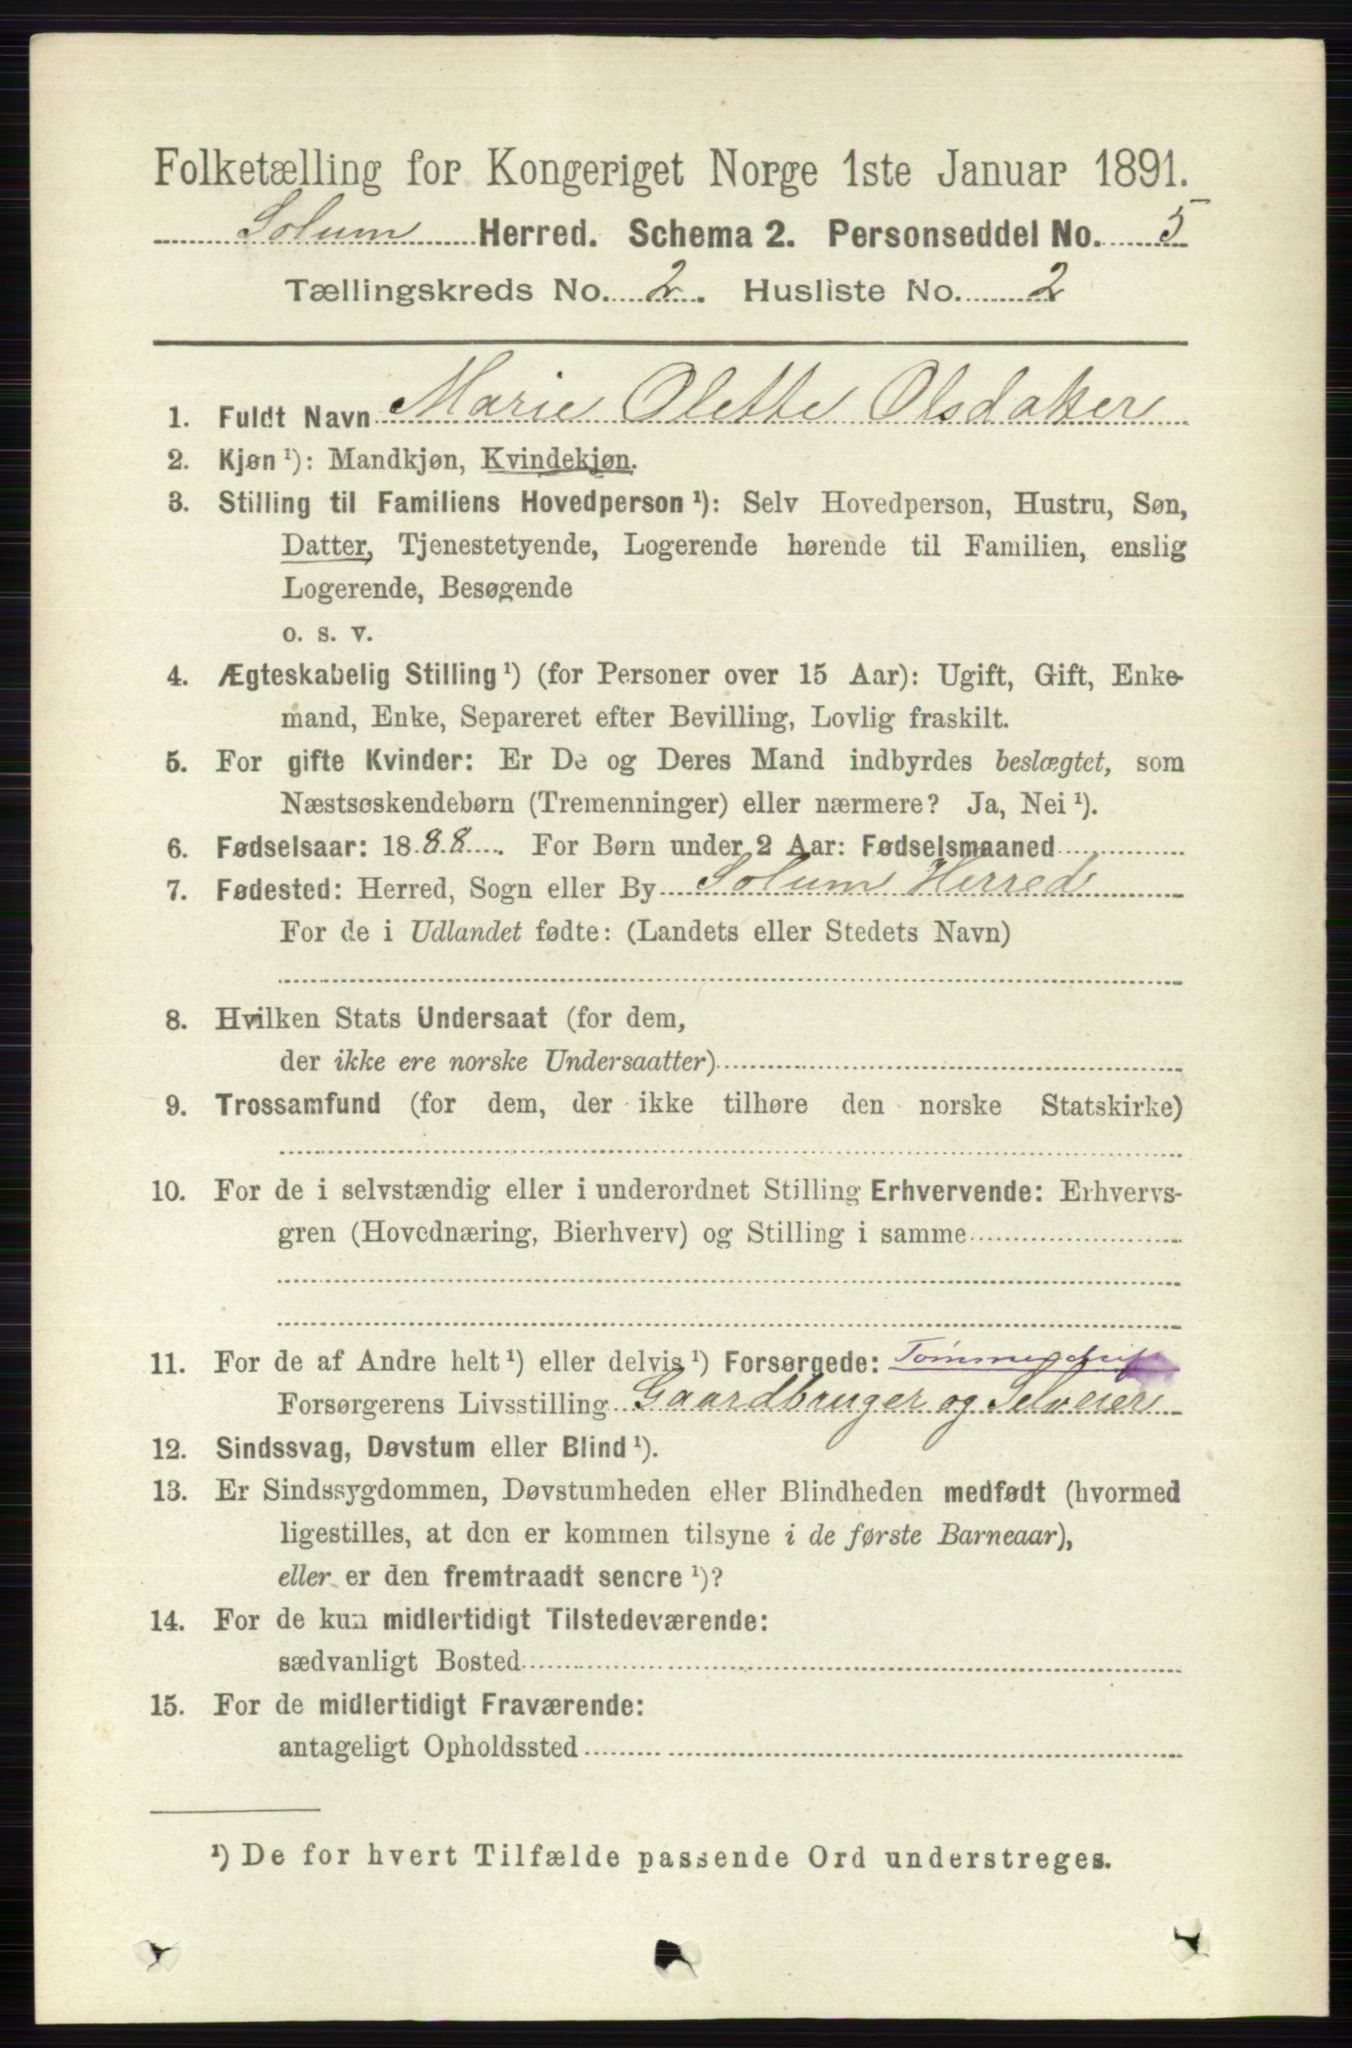 Folketælling for Kongeriget Norge 1ste Januar 1891.
Solum Herred. Schema 2. Personseddel No. 5
Tællingskreds No. 2. Husliste No. 2
1. Fuldt Navn Marie Olette Olsdatter
2. Kjøn ¹): Mandkjøn, Kvindekjøn.
3. Stilling til Familiens Hovedperson ¹): Selv Hovedperson, Hustru, Søn,
Datter, Tjenestetyende, Logerende hørende til Familien, enslig
Logerende, Besøgende
o. s. v.
4. Ægteskabelig Stilling ¹) (for Personer over 15 Aar): Ugift, Gift, Enke-
mand, Enke, Separeret efter Bevilling, Lovlig fraskilt.
5. For gifte Kvinder: Er De og Deres Mand indbyrdes beslægtet, som
Næstsøskendebørn (Tremenninger) eller nærmere? Ja, Nei ¹).
6. Fødselsaar: 1888. For Børn under 2 Aar: Fødselsmaaned
7. Fødested: Herred, Sogn eller By Solum Herred
For de i Udlandet fødte: (Landets eller Stedets Navn)
8. Hvilken Stats Undersaat (for dem,
der ikke ere norske Undersaatter)
9. Trossamfund (for dem, der ikke tilhøre den norske Statskirke)
10. For de i selvstændig eller i underordnet Stilling Erhvervende: Erhvervs-
gren (Hovednæring, Bierhverv) og Stilling i samme
11. For de af Andre helt ¹) eller delvis ¹) Forsørgede:
Forsørgerens Livsstilling Gaardbruger og Selveier
12. Sindssvag, Døvstum eller Blind ¹).
13. Er Sindssygdommen, Døvstumheden eller Blindheden medfødt (hvormed
ligestilles, at den er kommen tilsyne i de første Barneaar),
eller er den fremtraadt senere ¹)?
14. For de kun midlertidigt Tilstedeværende:
sædvanligt Bosted
15. For de midlertidigt Fraværende:
antageligt Opholdssted
¹) De for hvert Tilfælde passende Ord understreges.